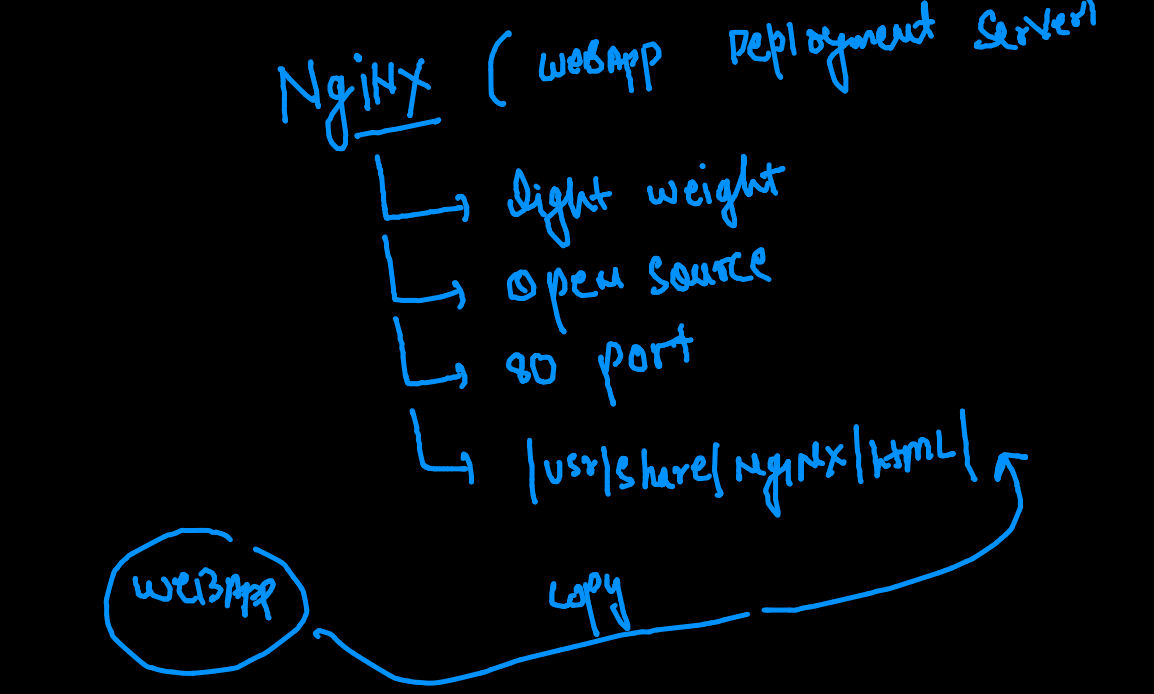 NgiNX ( WEBApp Deployment Server)
light weight
open source
80 port
/usr/share/NgiNX/html/
WEBApp
copy